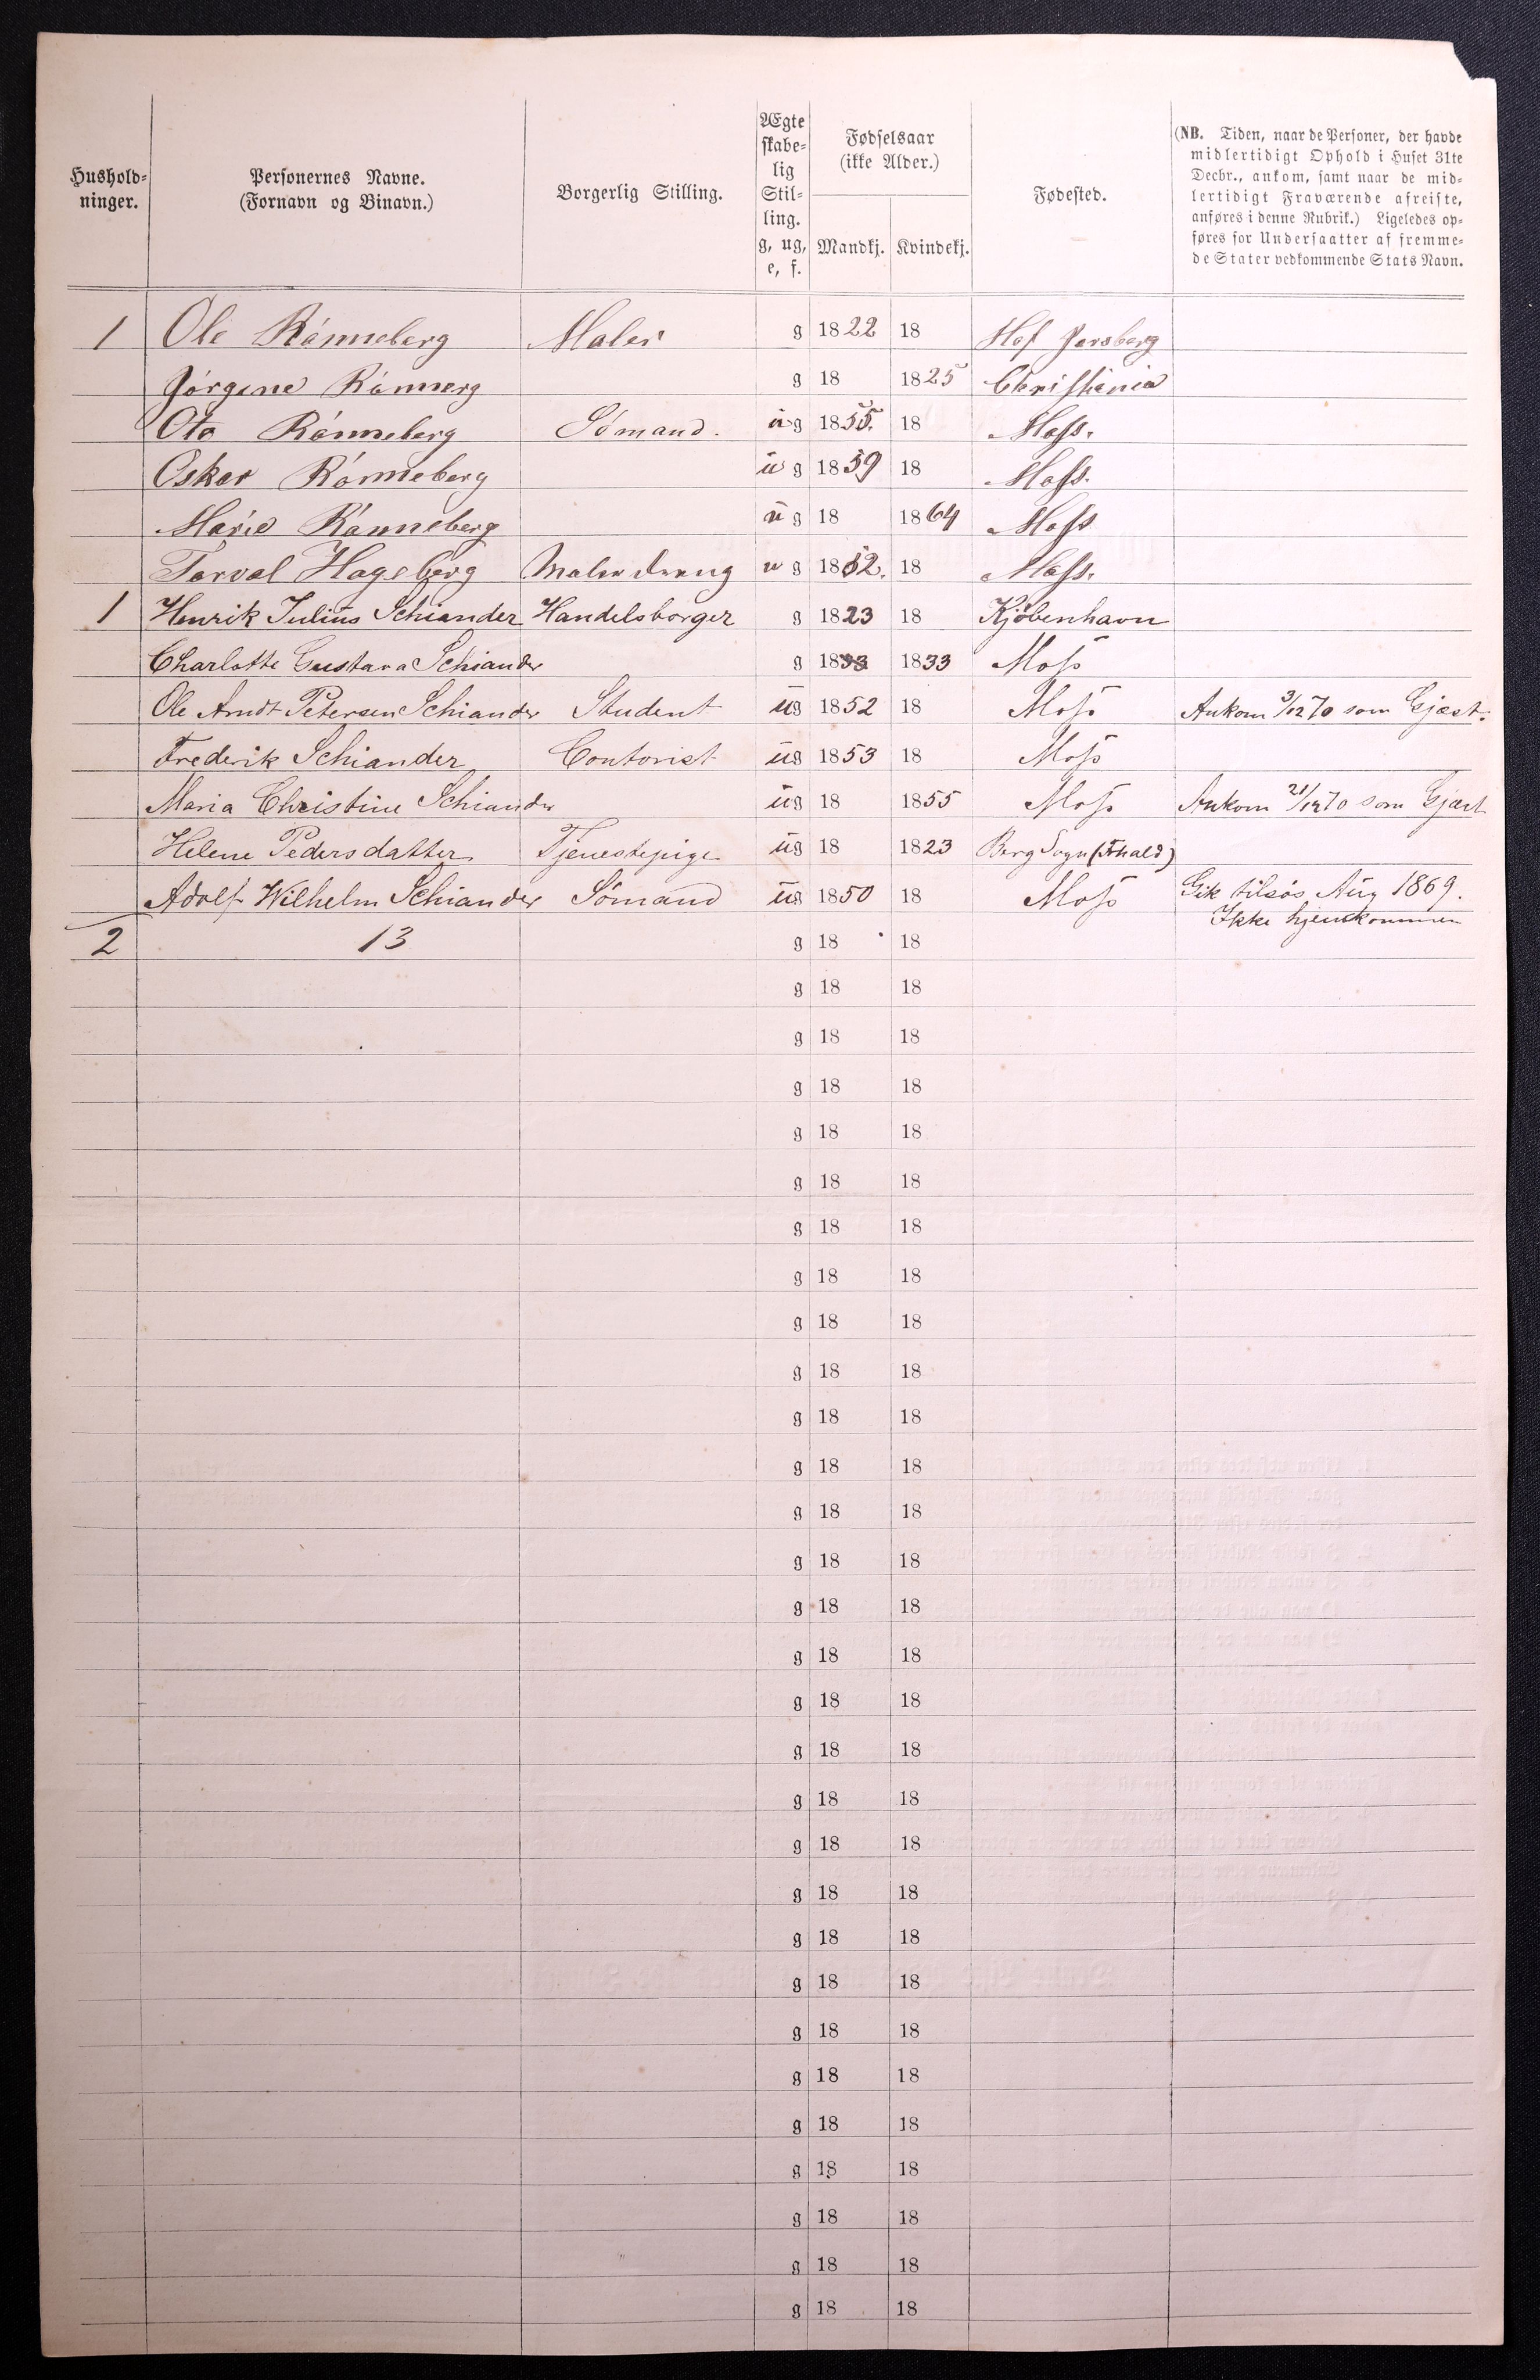 Hushold-ninger. | Personernes Navne. (Fornavn og Binavn.) | Borgerlig Stilling. | Ægte skabe-lig Stil-ling. g, ug, e, f. | Fødselsaar (ikke Alder.) Mandkj. | Kvindekj. | Fødested. | (NB. Tiden, naar de Personer, der havde midlertidigt Ophold i Huset 31te Decbr., ankom, samt naar de mid-lertidigt Fraværende afreiste, anføres i denne Rubrik.) Ligeledes op-føres for Undersaatter af fremme-de Stater vedkommende Stats Navn.
1 | Ole Rónneberg | Maler | g | 1822 | 18 | Hof Jarsberg
Jórgine Rónnerg | g | 18 | 1825 | Christiania
Oto Rónneberg | Sómand. | ug | 1855. | 18 | Moss.
Oskar Rónneberg | ug | 1859 | 18 | Moss.
Marie Rónneberg | ug | 18 | 1864 | Moss
Torval Hageberg | Malerdreng | ug | 1852. | 18 | Moss.
1 | Henrik Julius Schiander | Handelsborger | g | 1823 | 18 | Kjöbenhavn
Charlotte Gustava Schiander | g | 1833 | 1833 | Moss
Ole Arndt Petersen Schiander | Student | ug | 1852 | 18 | Moss | Ankom 3/12 70 som Gjæst.
Frederik Schiander | Contorist | ug | 1853 | 18 | Moss
Maria Christine Schiander | ug | 18 | 1855 | Moss | Ankom 21/12 70 som Gjæst
Helene Pedersdatter | Tjenestepige | ug | 18 | 1823 | Berg Sogn (Fhald)
Adolf Wilhelm Schiander | Sömand | ug | 1850 | 18 | Moss | Gik tilsös Aug 1869.
Ikke hjemkommen
2 | 13 | g | 18 | 18
g | 18 | 18
g | 18 | 18
g | 18 | 18
g | 18 | 18
g | 18 | 18
g | 18 | 18
g | 18 | 18
g | 18 | 18
g | 18 | 18
g | 18 | 18
g | 18 | 18
g | 18 | 18
g | 18 | 18
g | 18 | 18
g | 18 | 18
g | 18 | 18
g | 18 | 18
g | 18 | 18
g | 18 | 18
g | 18 | 18
g | 18 | 18
g | 18 | 18
g | 18 | 18
g | 18 | 18
g | 18 | 18
g | 18 | 18
g | 18 | 18
g | 18 | 18
g | 18 | 18